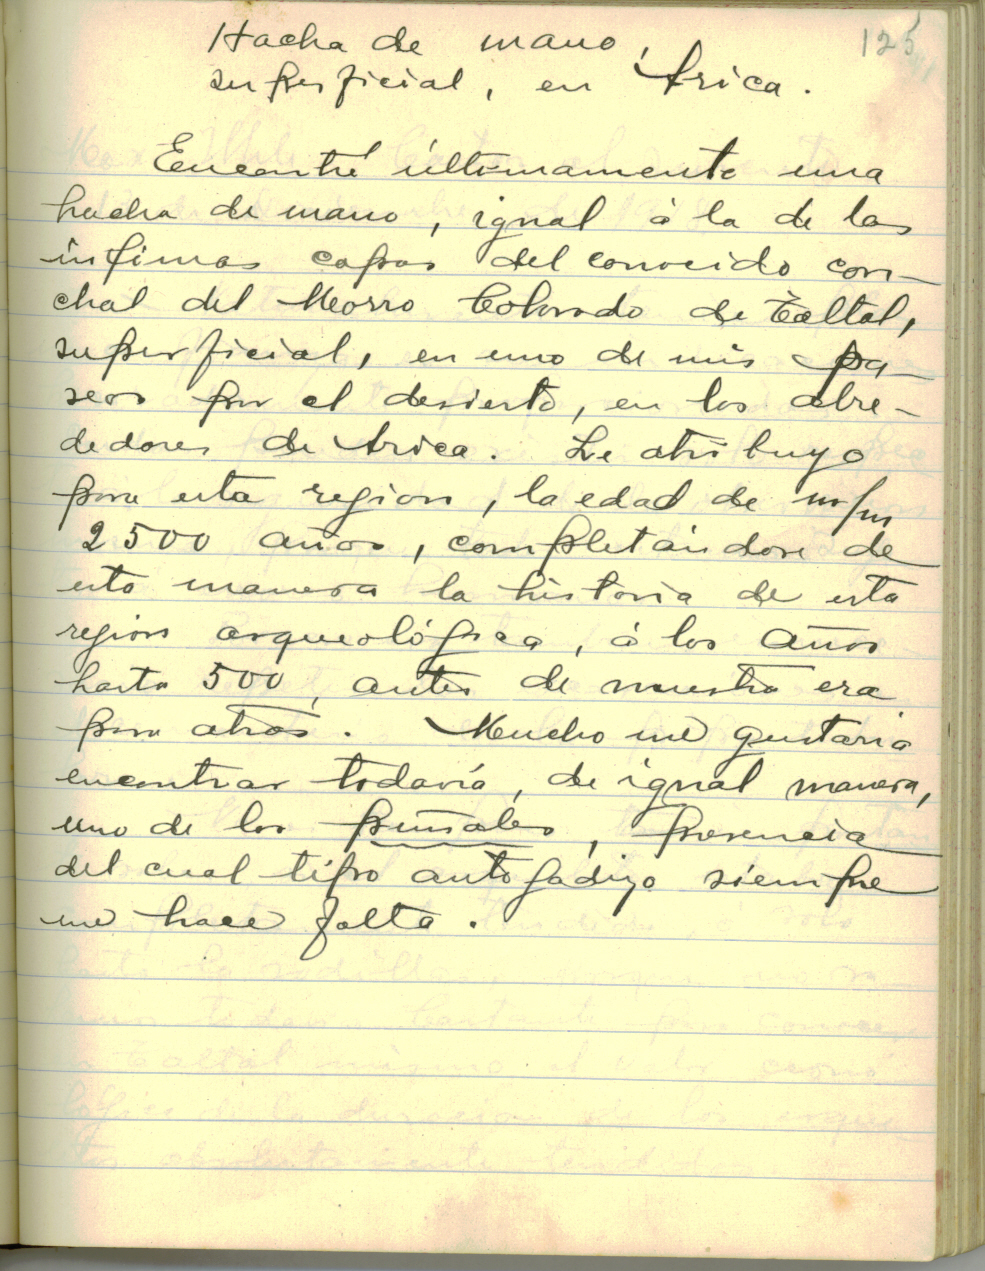 125
Hacha de mano,
superficial, en Arica.
Encontré últimamente una
hacha de mano, igual á la de las
ínfimas capas del conocido con-
chal del Morro Colorado de Taltal,
superficial, en uno de mis pa-
seos por el desierto, en los alre-
dedores de Arica. Le atribuyo
para esta region, la edad de
2500 años, completándose de
esta manera la historia de esta
region arqueológica, á los años
hasta 500, antes de nuestra era
para atrás. Mucho me gustaria
encontrar todavía, de igual manera,
uno de los puñales, presencia
del cual tipo siempre
me hace falta.